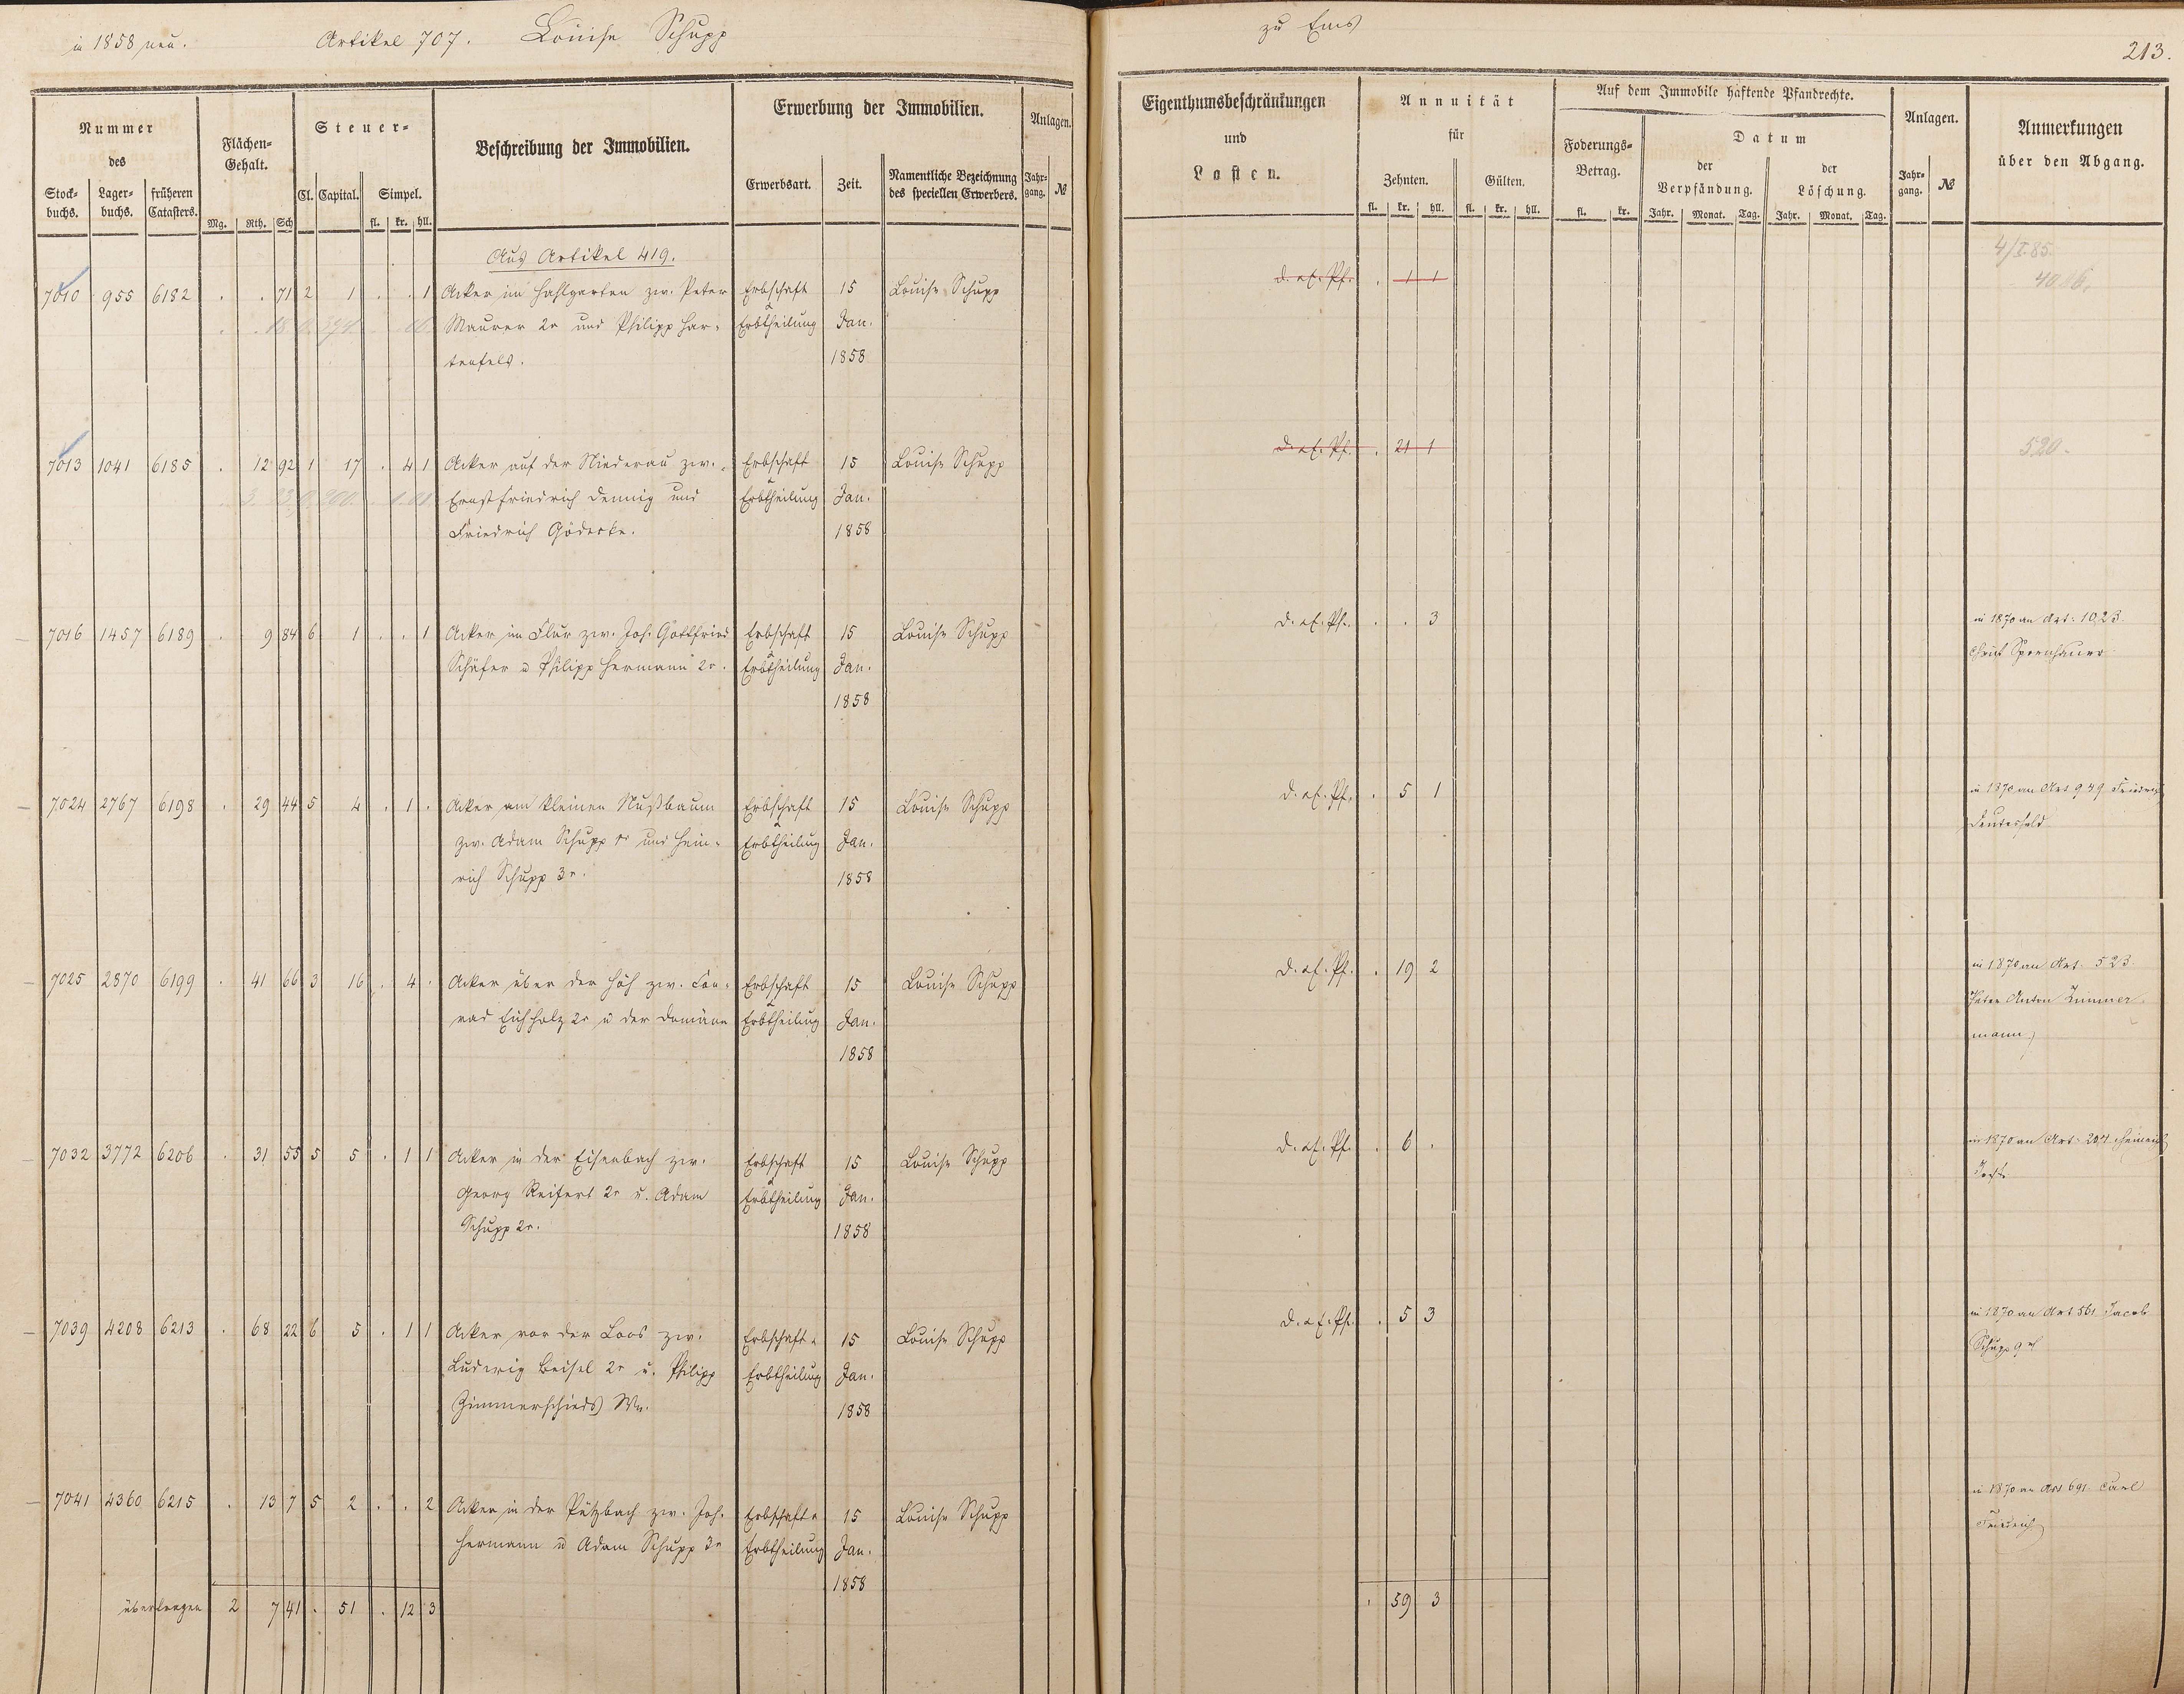 in 1858 neu.
Artikel 707. Louise Schupp
zu Ems
213.
Nummer des
Stock-buchs. Lager-buchs. früheren Catasters.
Flächen-Gehalt.
Mg. Rth. Sch
Steuer-
Cl. Capital. Simpel.
fl. kr. hll.
Beschreibung der Immobilien.
Erwerbung der Immobilien.
Erwerbsart. Zeit. Namentliche Bezeichnung des speciellen Erwerbers.
Anlagen.
Jahr-gang. №
Eigenthumsbeschränkungen
und
Lasten.
Annuität
für
Zehnten. Gülten.
fl. kr. hll. fl. kr. hll.
Auf dem Immobile haftende Pfandrechte.
Foderungs-Betrag.
fl. kr.
Datum
der Verpfändung. der Löschung.
Jahr. Monat. Tag. Jahr. Monat. Tag.
Anlagen.
Jahr-gang. №
Anmerkungen
über den Abgang.
Aus Artikel 419.
4/I.85.
7010 955 6182 . . 71 2 1 . . 1 Acker im Hahlgarten zw. Peter Erbschaft 15 Louise Schupp d. ac. Pf. . 1 1
Maurer 2r und Philipp Har- Erbtheilung Jan.
teufels. 1858
7013 1041 6185 . 12 92 1 17 . 4 1 Acker auf der Niederau zw. Erbschaft 15 Louise Schupp d. ac. Pf. . 21 1 520.
Ernst Friedrich Dennig und Erbtheilung Jan.
Friedrich Gödecke. 1858
7016 1457 6189 . 9 84 6 1 . . 1 Acker im Flur zw. Joh. Gottfried Erbschaft 15 Louise Schupp d. ac. Pf. . . 3 in 1870 an Art: 1023
Schäfer u Philipp Hermann 2r. Erbtheilung Jan.
1858
7024 2767 6198 . 29 44 5 4 . 1 . Acker am kleinen Nußbaum Erbschaft 15 Louise Schupp d. ac. Pf. . 5 1 in 1870 an Art 949 Friedrich
zw. Adam Schupp 1r und Hein- Erbtheilung Jan.
rich Schupp 3r. 1858
7025 2870 6199 . 41 66 3 16 . 4 . Acker über der Höh zw. Con- Erbschaft 15 Louise Schupp d. ac. Pf. . 19 2 in 1870 an Art: 523
rad Eichholz 2r u der Domäne Erbtheilung Jan. Peter Anton Zimmer
1858 mann
7032 3772 6206 . 31 55 5 5 . 1 1 Acker in der Eisenbach zw. Erbschaft 15 Louise Schupp d. ac. Pf. . 6 . in 1870 an Art: 204 Heinrich
Georg Reifert 2r u. Adam Erbtheilung Jan.
Schupp 2r. 1858
7039 4208 6213 . 68 22 6 5 . 1 1 Acker vor der Loos zw. Erbschaft u 15 Louise Schupp d. ac. Pf. . 5 3 in 1870 an Art 561 Jacob
Ludwig Beisel 2r u. Philipp Erbtheilung Jan. Schupp 9r
Zimmerschieds We. 1858
7041 4360 6215 . 13 7 5 2 . . 2 Acker in der Pützbach zw. Joh. Erbschaft u 15 Louise Schupp in 1870 an Art 691 Carl
Hermann u Adam Schupp 3r Erbtheilung Jan. Friedrich
1858
übertragen 2 7 41 . 51 . 12 3 . 59 3